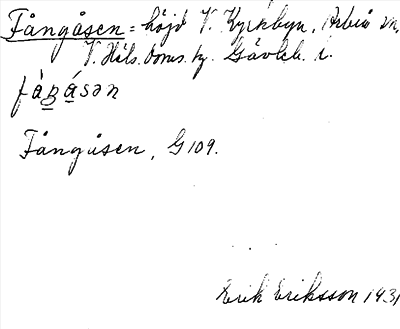 Fångåsen = höjd V. Kyrkbyn, Arbrå sn,
V. Häls. doms. hg. Gävleb. l.
fàŋásən
Fångåsen, G 109.
Erik Eriksson 1931